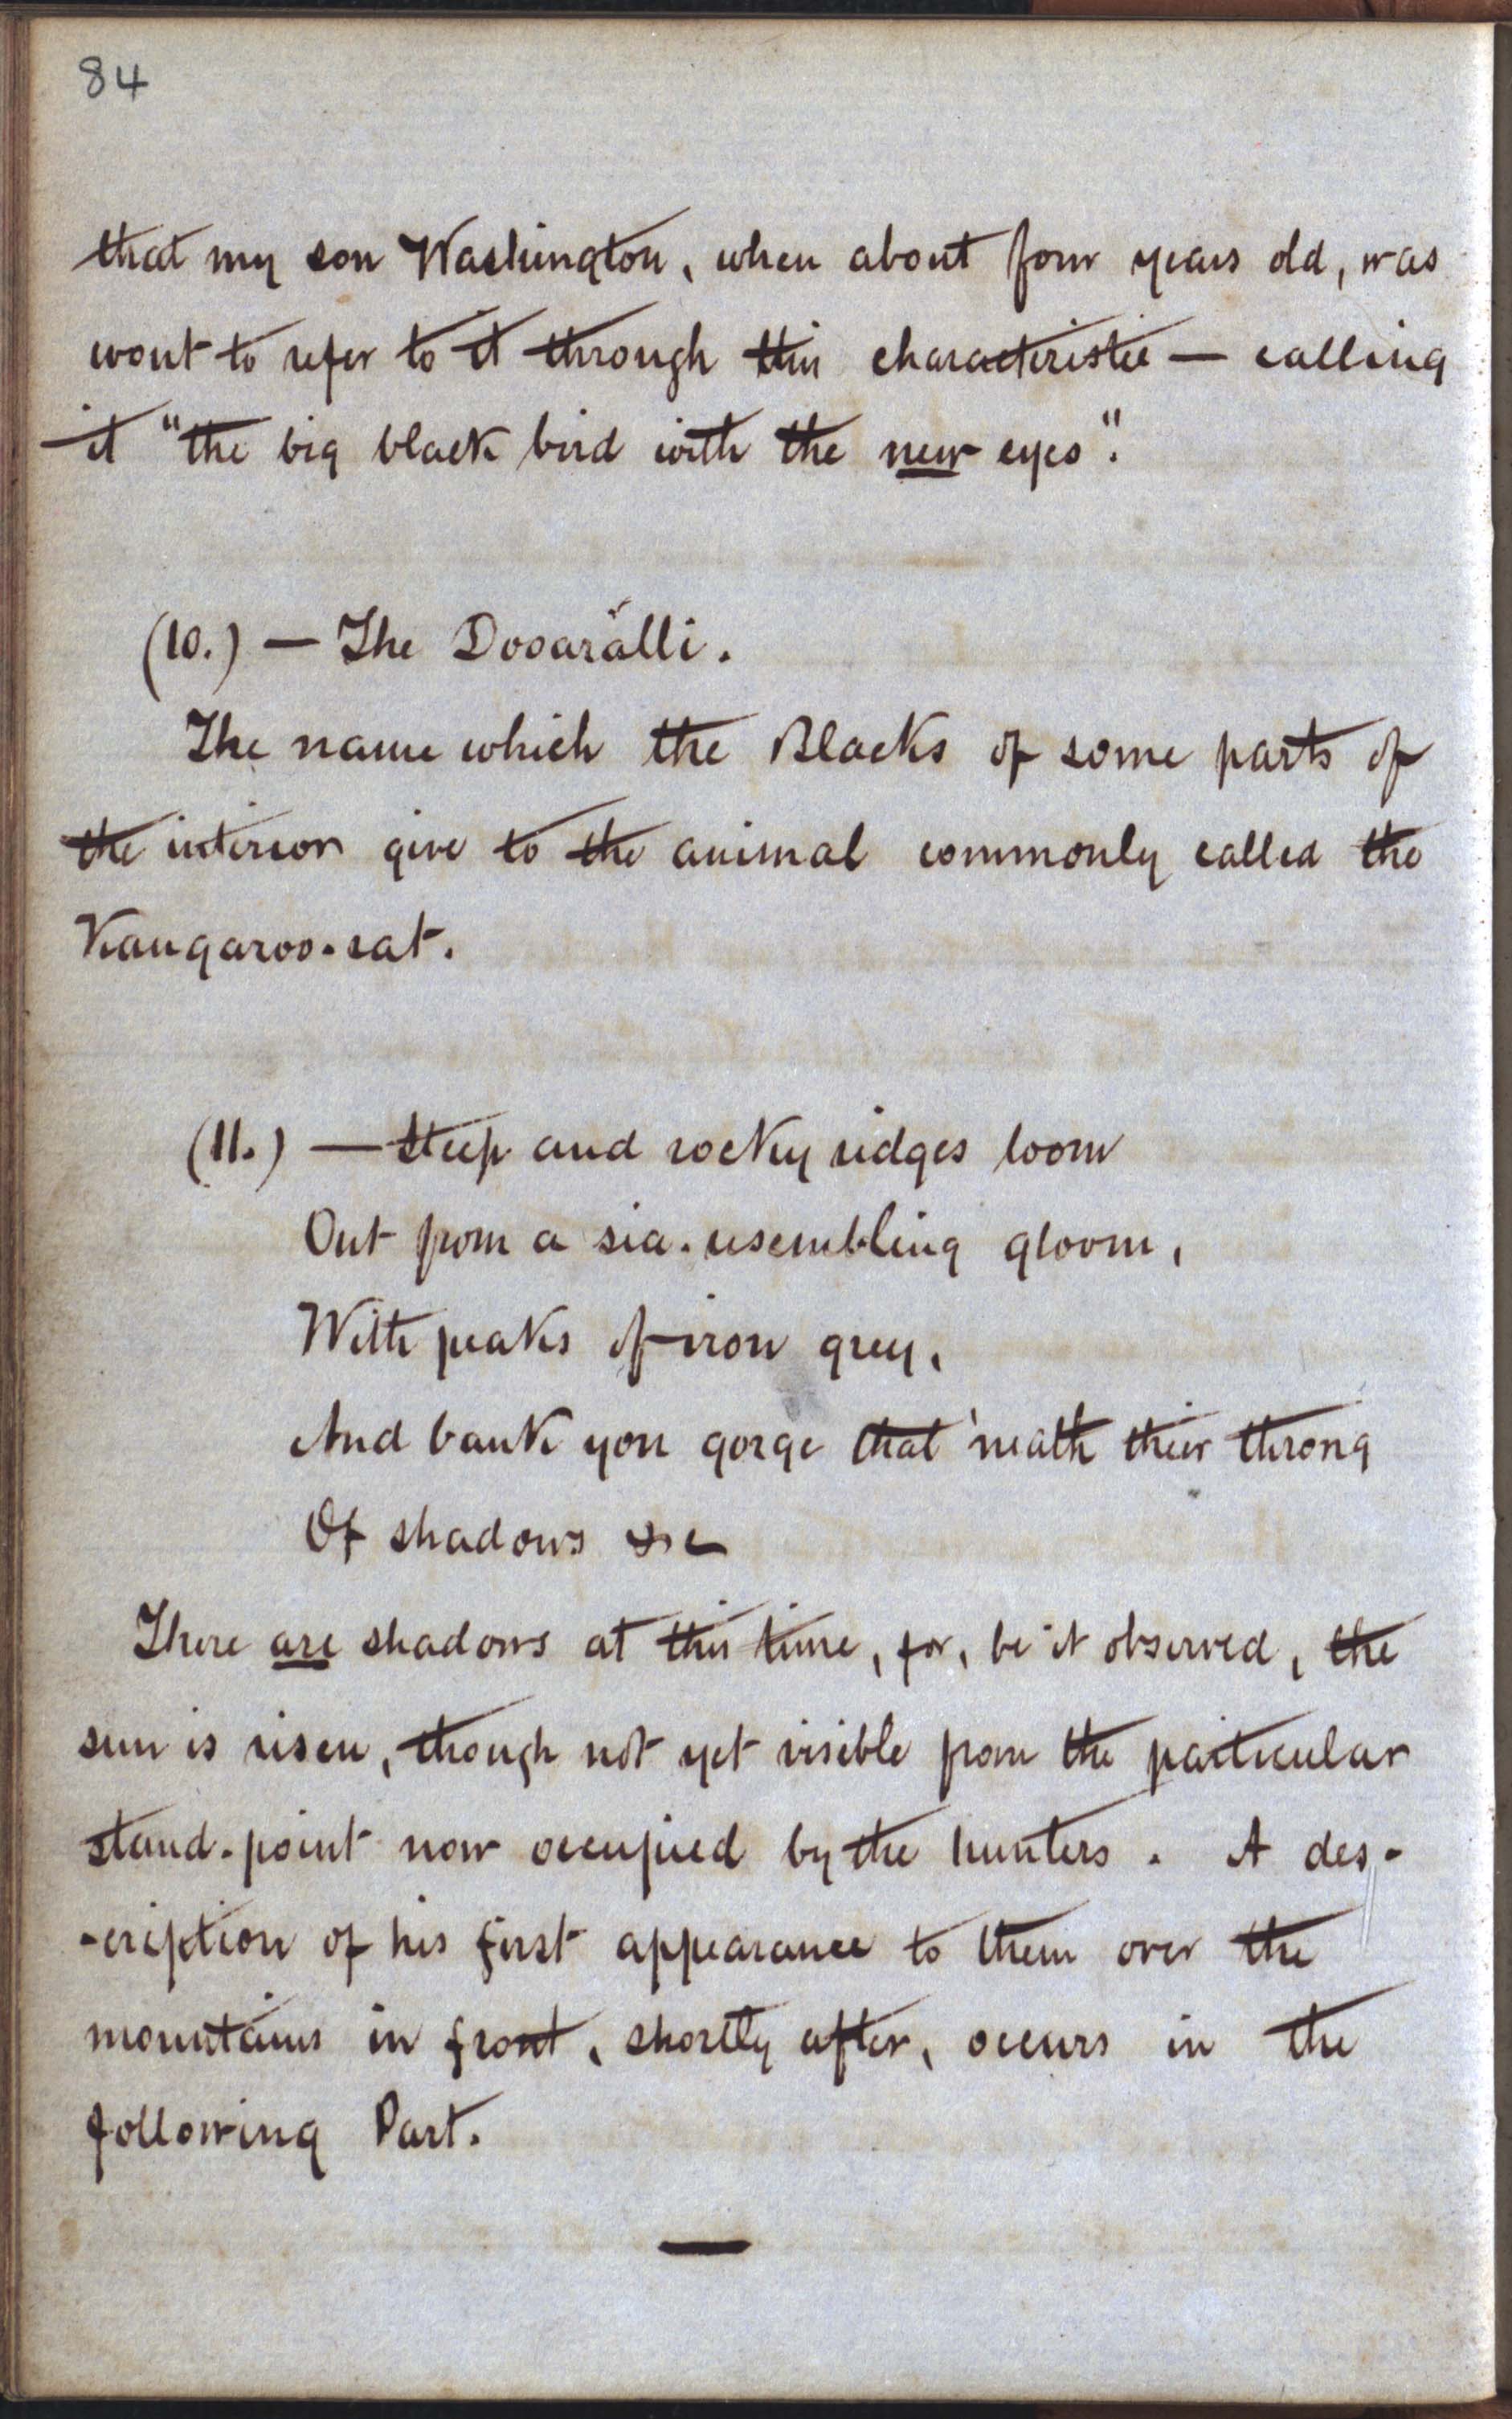 84
that my son Washington, when about four years old, was
wont to refer to it through this characteristic — calling
it "the big black bird with the new eyes".
(10.) — The Dooarálli.
The name which the Blacks of some parts of
the interior give to the animal commonly called the
Kangaroo-rat.
(11.) — Steep and rocky ridges loom
Out from a sea-resembling gloom,
With peaks of iron grey,
And bank yon gorge that 'neath their throng
Of shadows &c
There are shadows at this time, for, be it observed, the
sun is risen, though not yet visible from the particular
stand-point now occupied by the hunters. A des-
-cription of his first appearance to them over the
mountains in front, shortly after, occurs in the
following Part.